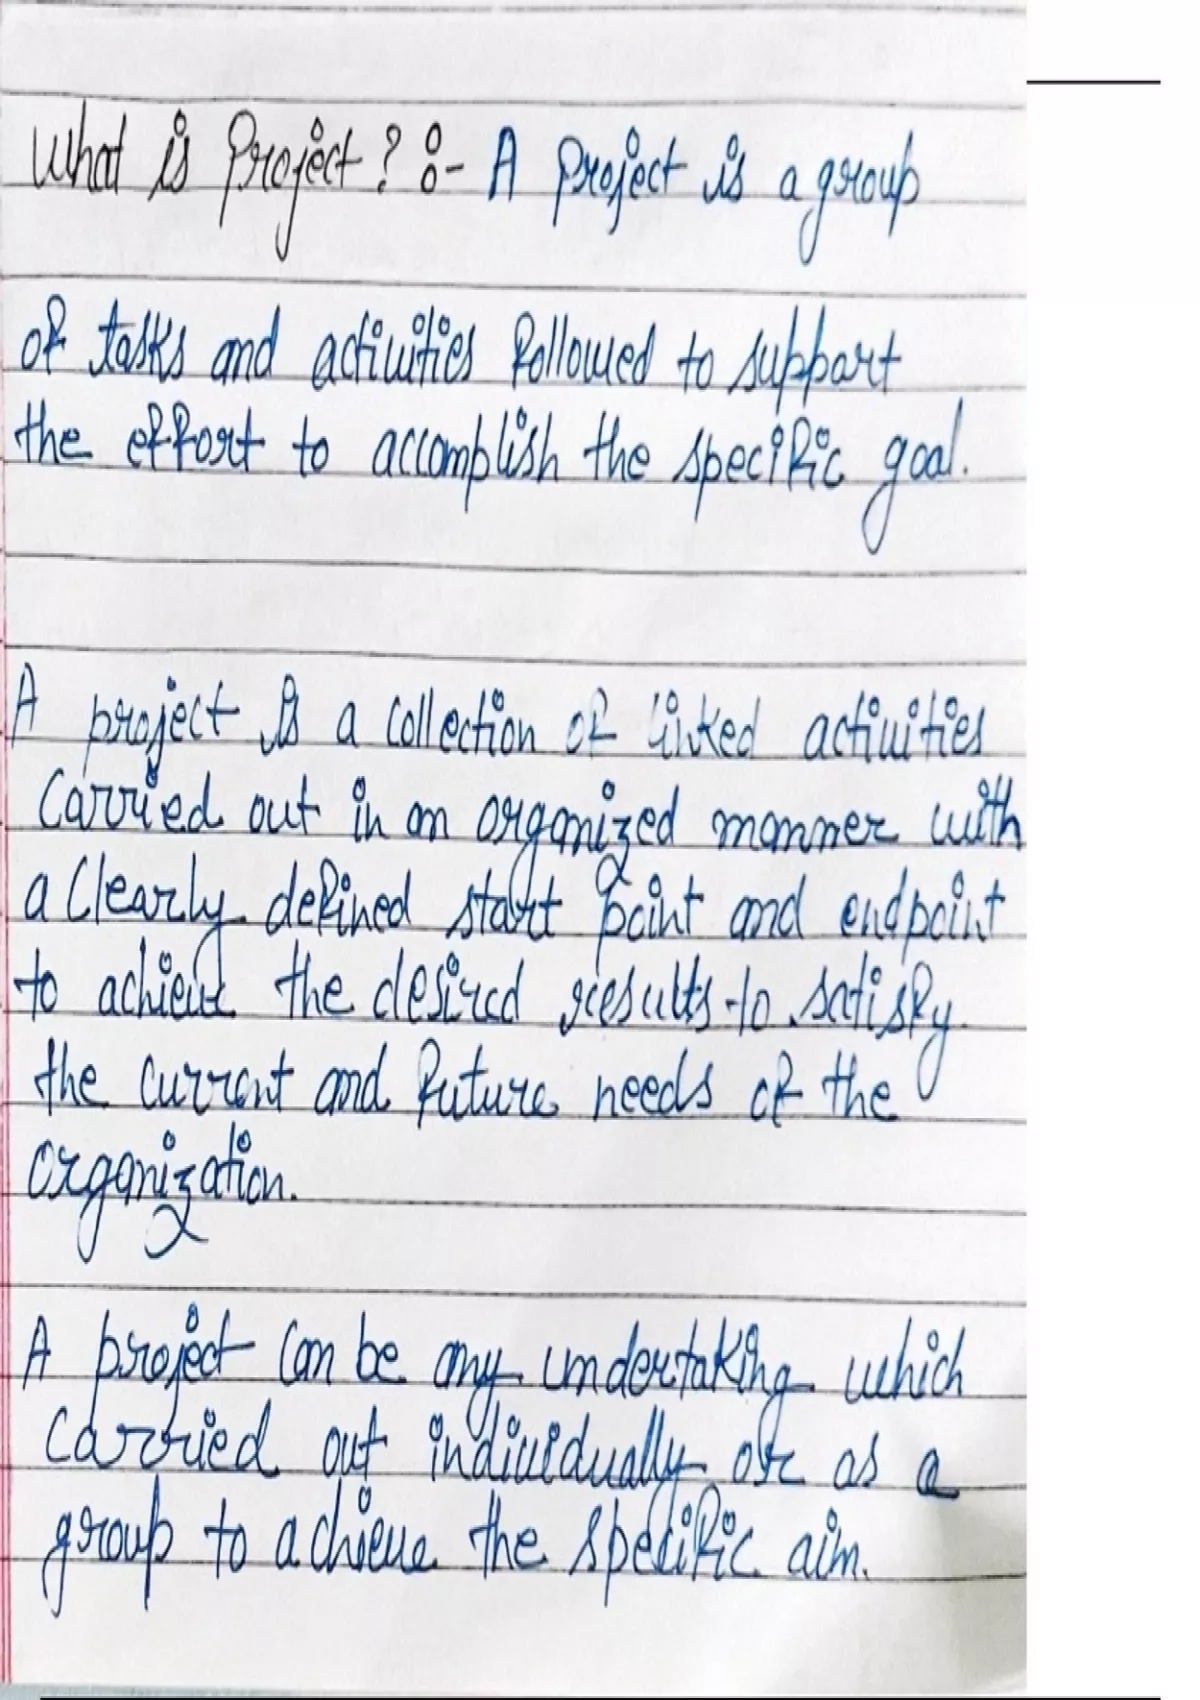 What is Project? :- A Project is a group
of tasks and activities followed to support
the effort to accomplish the specific goal.
A project is a collection of linked activities
Carried out in an organized manner with
a Clearly defined start point and endpoint
to achieve the desired results to satisfy
the current and future needs of the
organization.
A project Can be any undertaking which
Carried out individually or as a
group to achieve the specific aim.